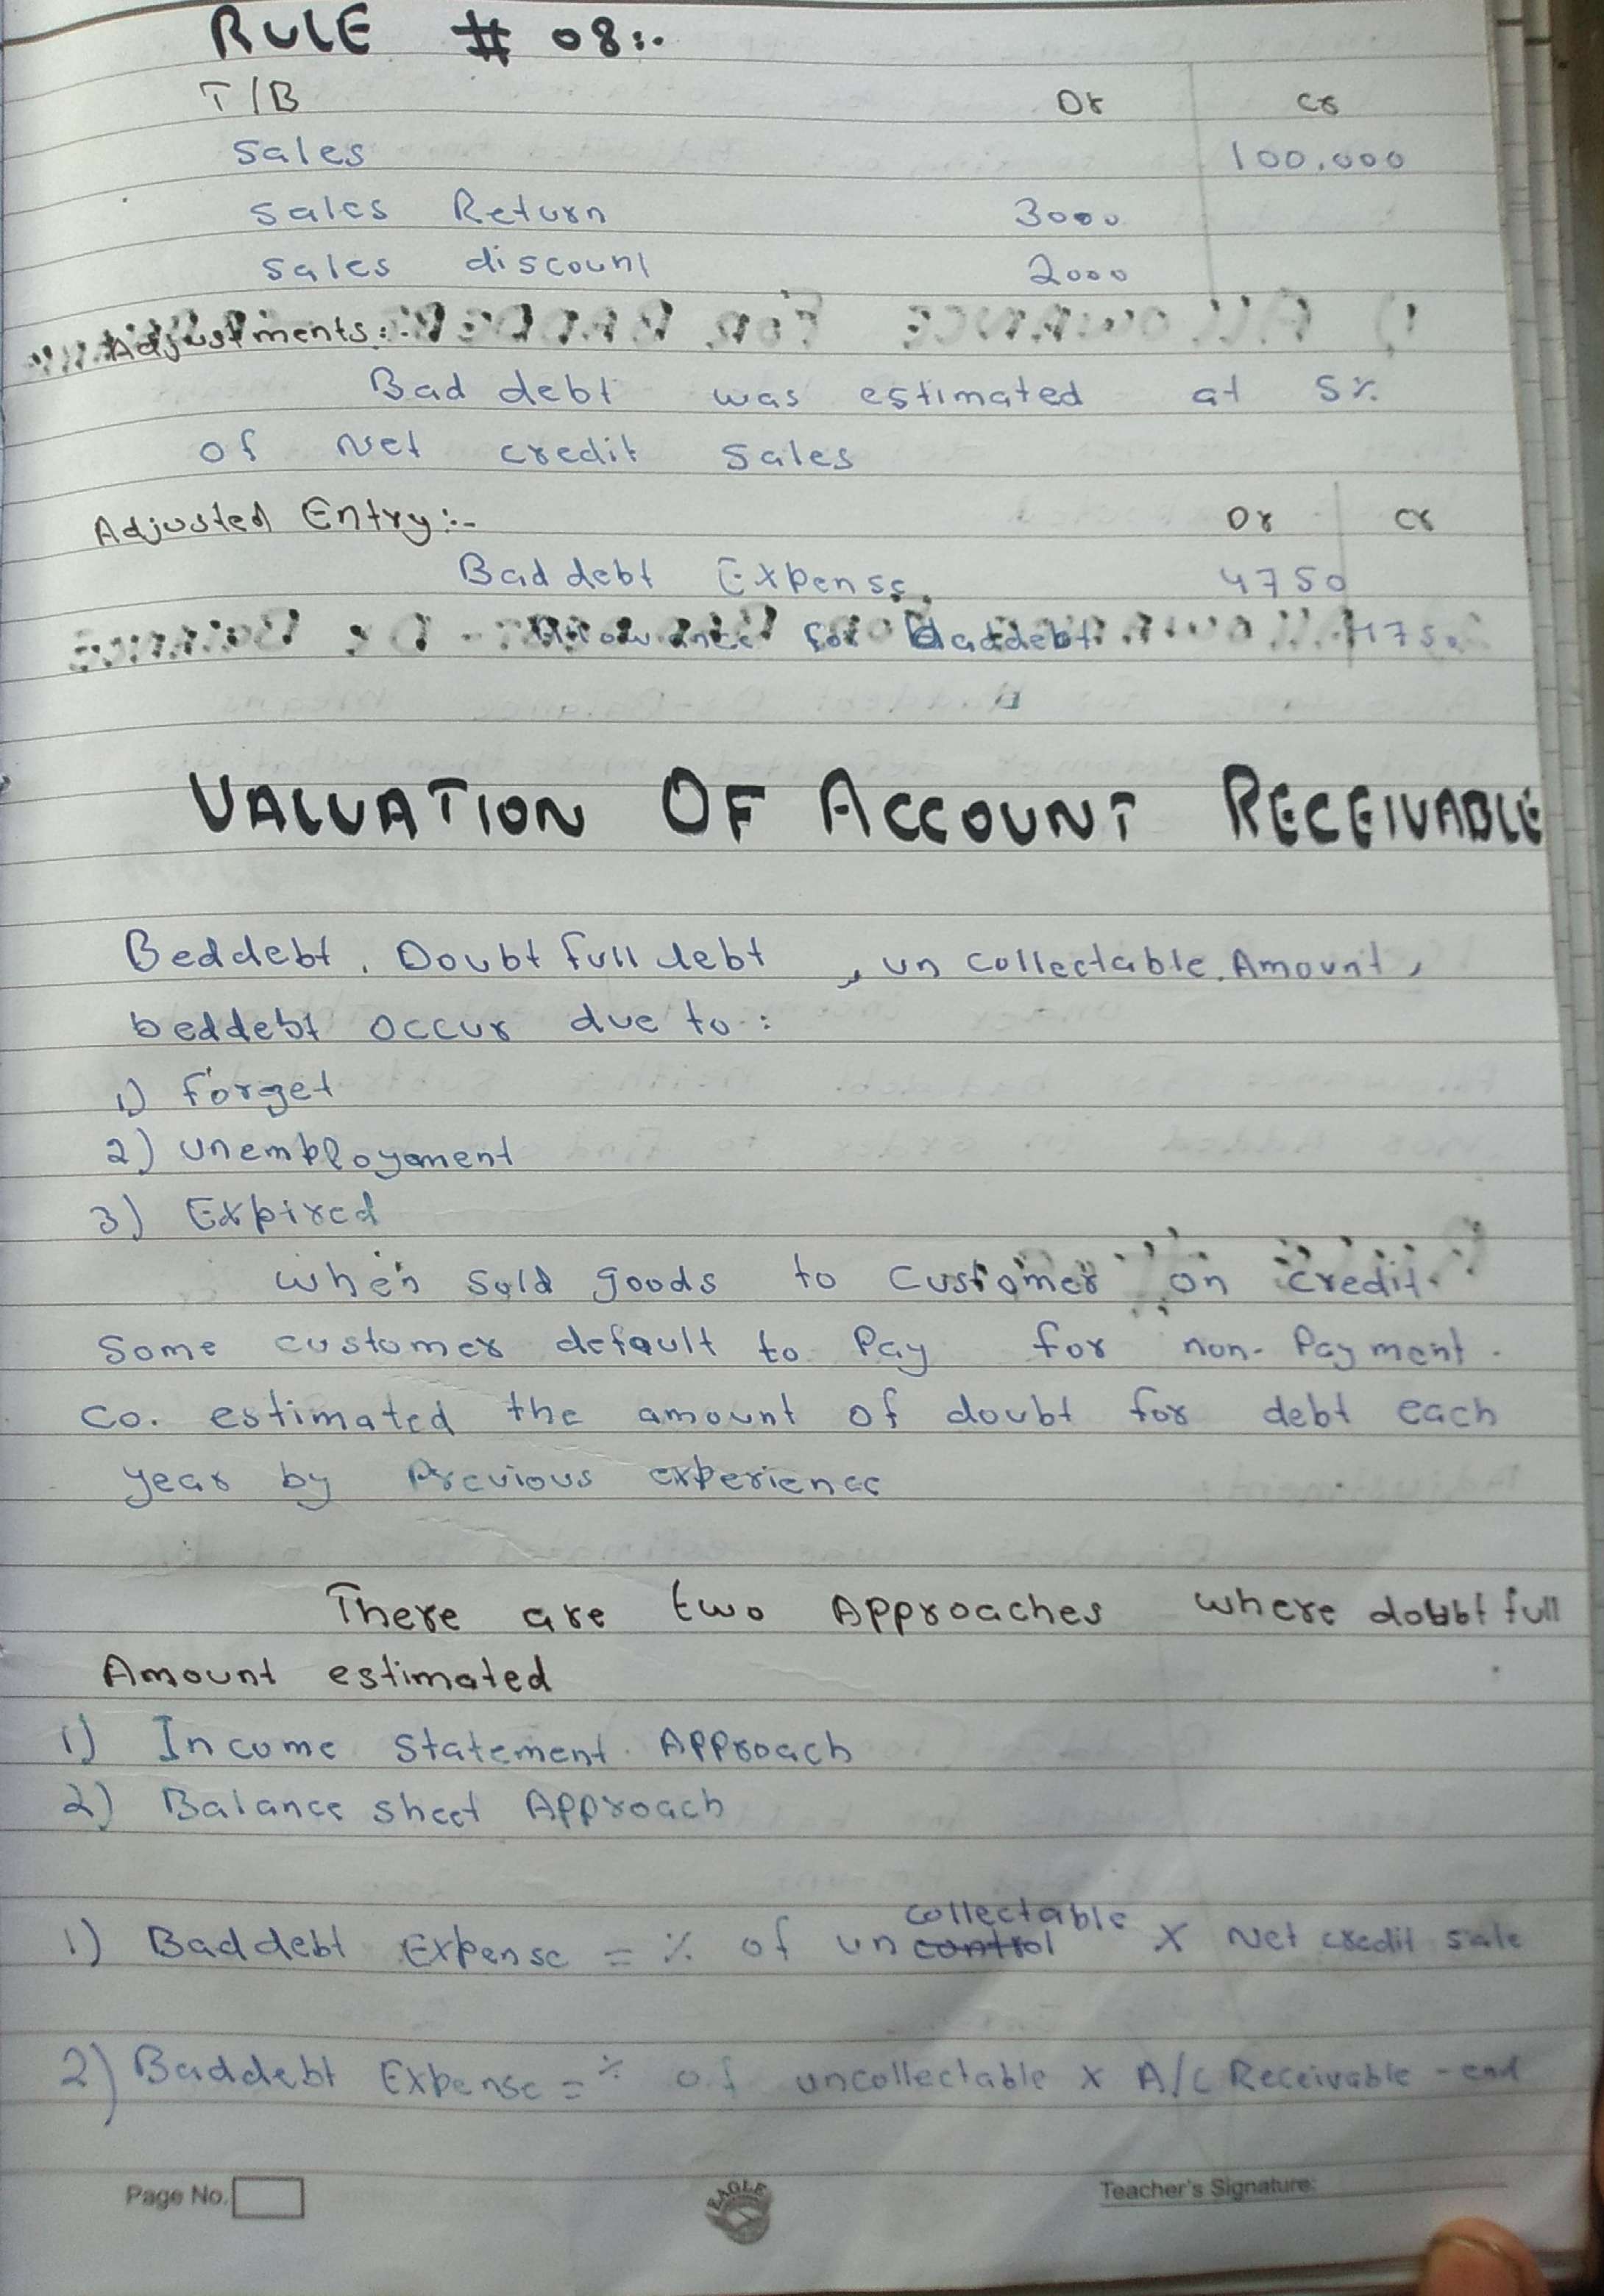 RULE # 08:.
T/B Dr Cr
Sales 100,000
Sales Return 3000
Sales discount 2000
Adjustments:
Bad debt was estimated at 5%
of Net credit Sales
Adjusted Entry:- Dr Cr
Bad debt Expense 4750
Allowance for Baddebt 4750
VALUATION OF ACCOUNT RECEIVABLE
Beddebt, Doubt full debt, un collectable Amount,
beddebt occur due to :
1) forget
2) unemployement
3) Expired
when sold goods to customer on credit.
Some customer default to Pay for non-Payment.
Co. estimated the amount of doubt for debt each
year by Previous experience
There are two Approaches where doubt full
Amount estimated
1) Income Statement Approach
2) Balance sheet Approach
collectable
1) Baddebt Expense = % of un control X Net credit sale
2) Baddebt Expense = % of uncollectable X A/C Receivable - end
Page No. EAGLE Teacher's Signature: